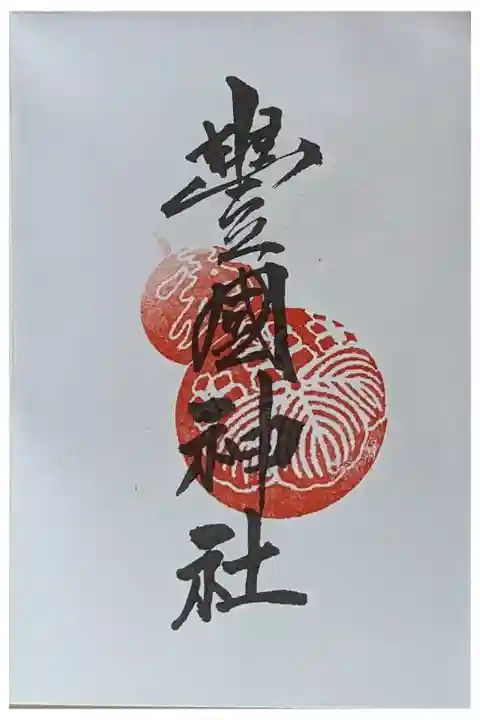 豐國神社